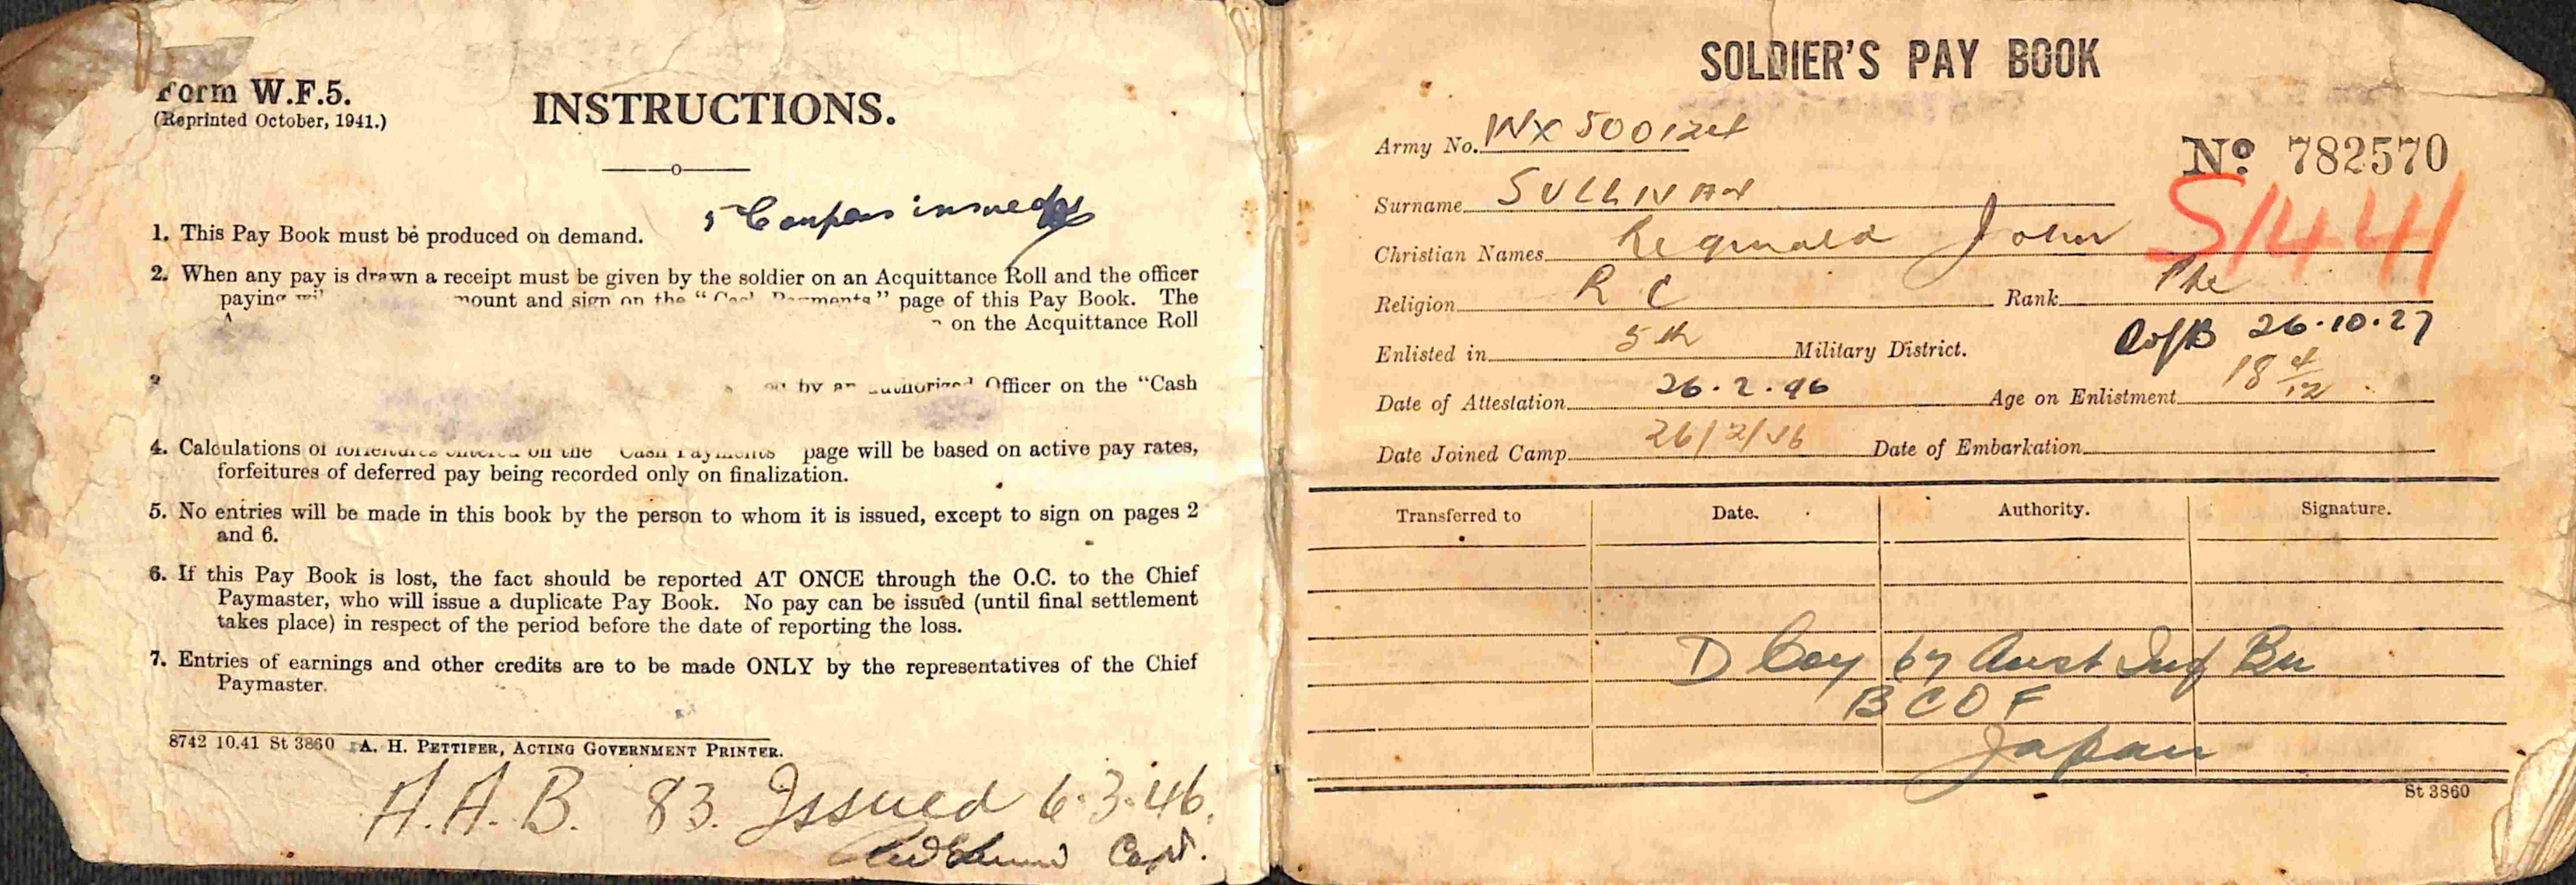 Form W.F.5.
(Reprinted October, 1941.)
INSTRUCTIONS.
5 Coupons issued
1. This Pay Book must be produced on demand.
2. When any pay is drawn a receipt must be given by the soldier on an Acquittance Roll and the officer
paying mount and sign on the "Cash Payments" page of this Pay Book. The
on the Acquittance Roll
by an authorized Officer on the "Cash
4. Calculations of forfeitures entered on the Cash Payments page will be based on active pay rates,
forfeitures of deferred pay being recorded only on finalization.
5. No entries will be made in this book by the person to whom it is issued, except to sign on pages 2
and 6.
6. If this Pay Book is lost, the fact should be reported AT ONCE through the O.C. to the Chief
Paymaster, who will issue a duplicate Pay Book. No pay can be issued (until final settlement
takes place) in respect of the period before the date of reporting the loss.
7. Entries of earnings and other credits are to be made ONLY by the representatives of the Chief
Paymaster.
8742 10.41 St 3860 A. H. PETTIFER, ACTING GOVERNMENT PRINTER.
A.A.B. 83. Issued 6.3.46.
Capt.
SOLDIER'S PAY BOOK
Army No. WX 500124
No 782570
S1441
Surname SULLIVAN
Christian Names Reginald John
Religion R C Rank Pte
DofB 26.10.27
Enlisted in 5th Military District.
Date of Attestation 26.2.46 Age on Enlistment 18 4/12
Date Joined Camp 26/2/46 Date of Embarkation
Transferred to Date. Authority. Signature.
D Coy 67 Aust Inf Bn
BCOF
Japan
St 3860